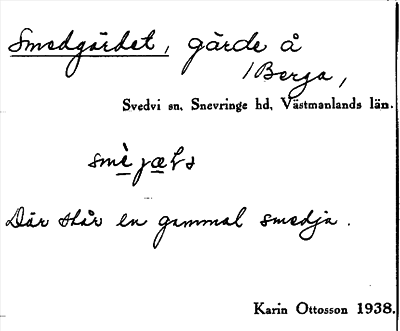 Smedgärdet, gärde å
1 Berga,
Svedvi sn, Snevringe hd, Västmanlands län.
Där står en gammal smedja.
Karin Ottosson 1938.